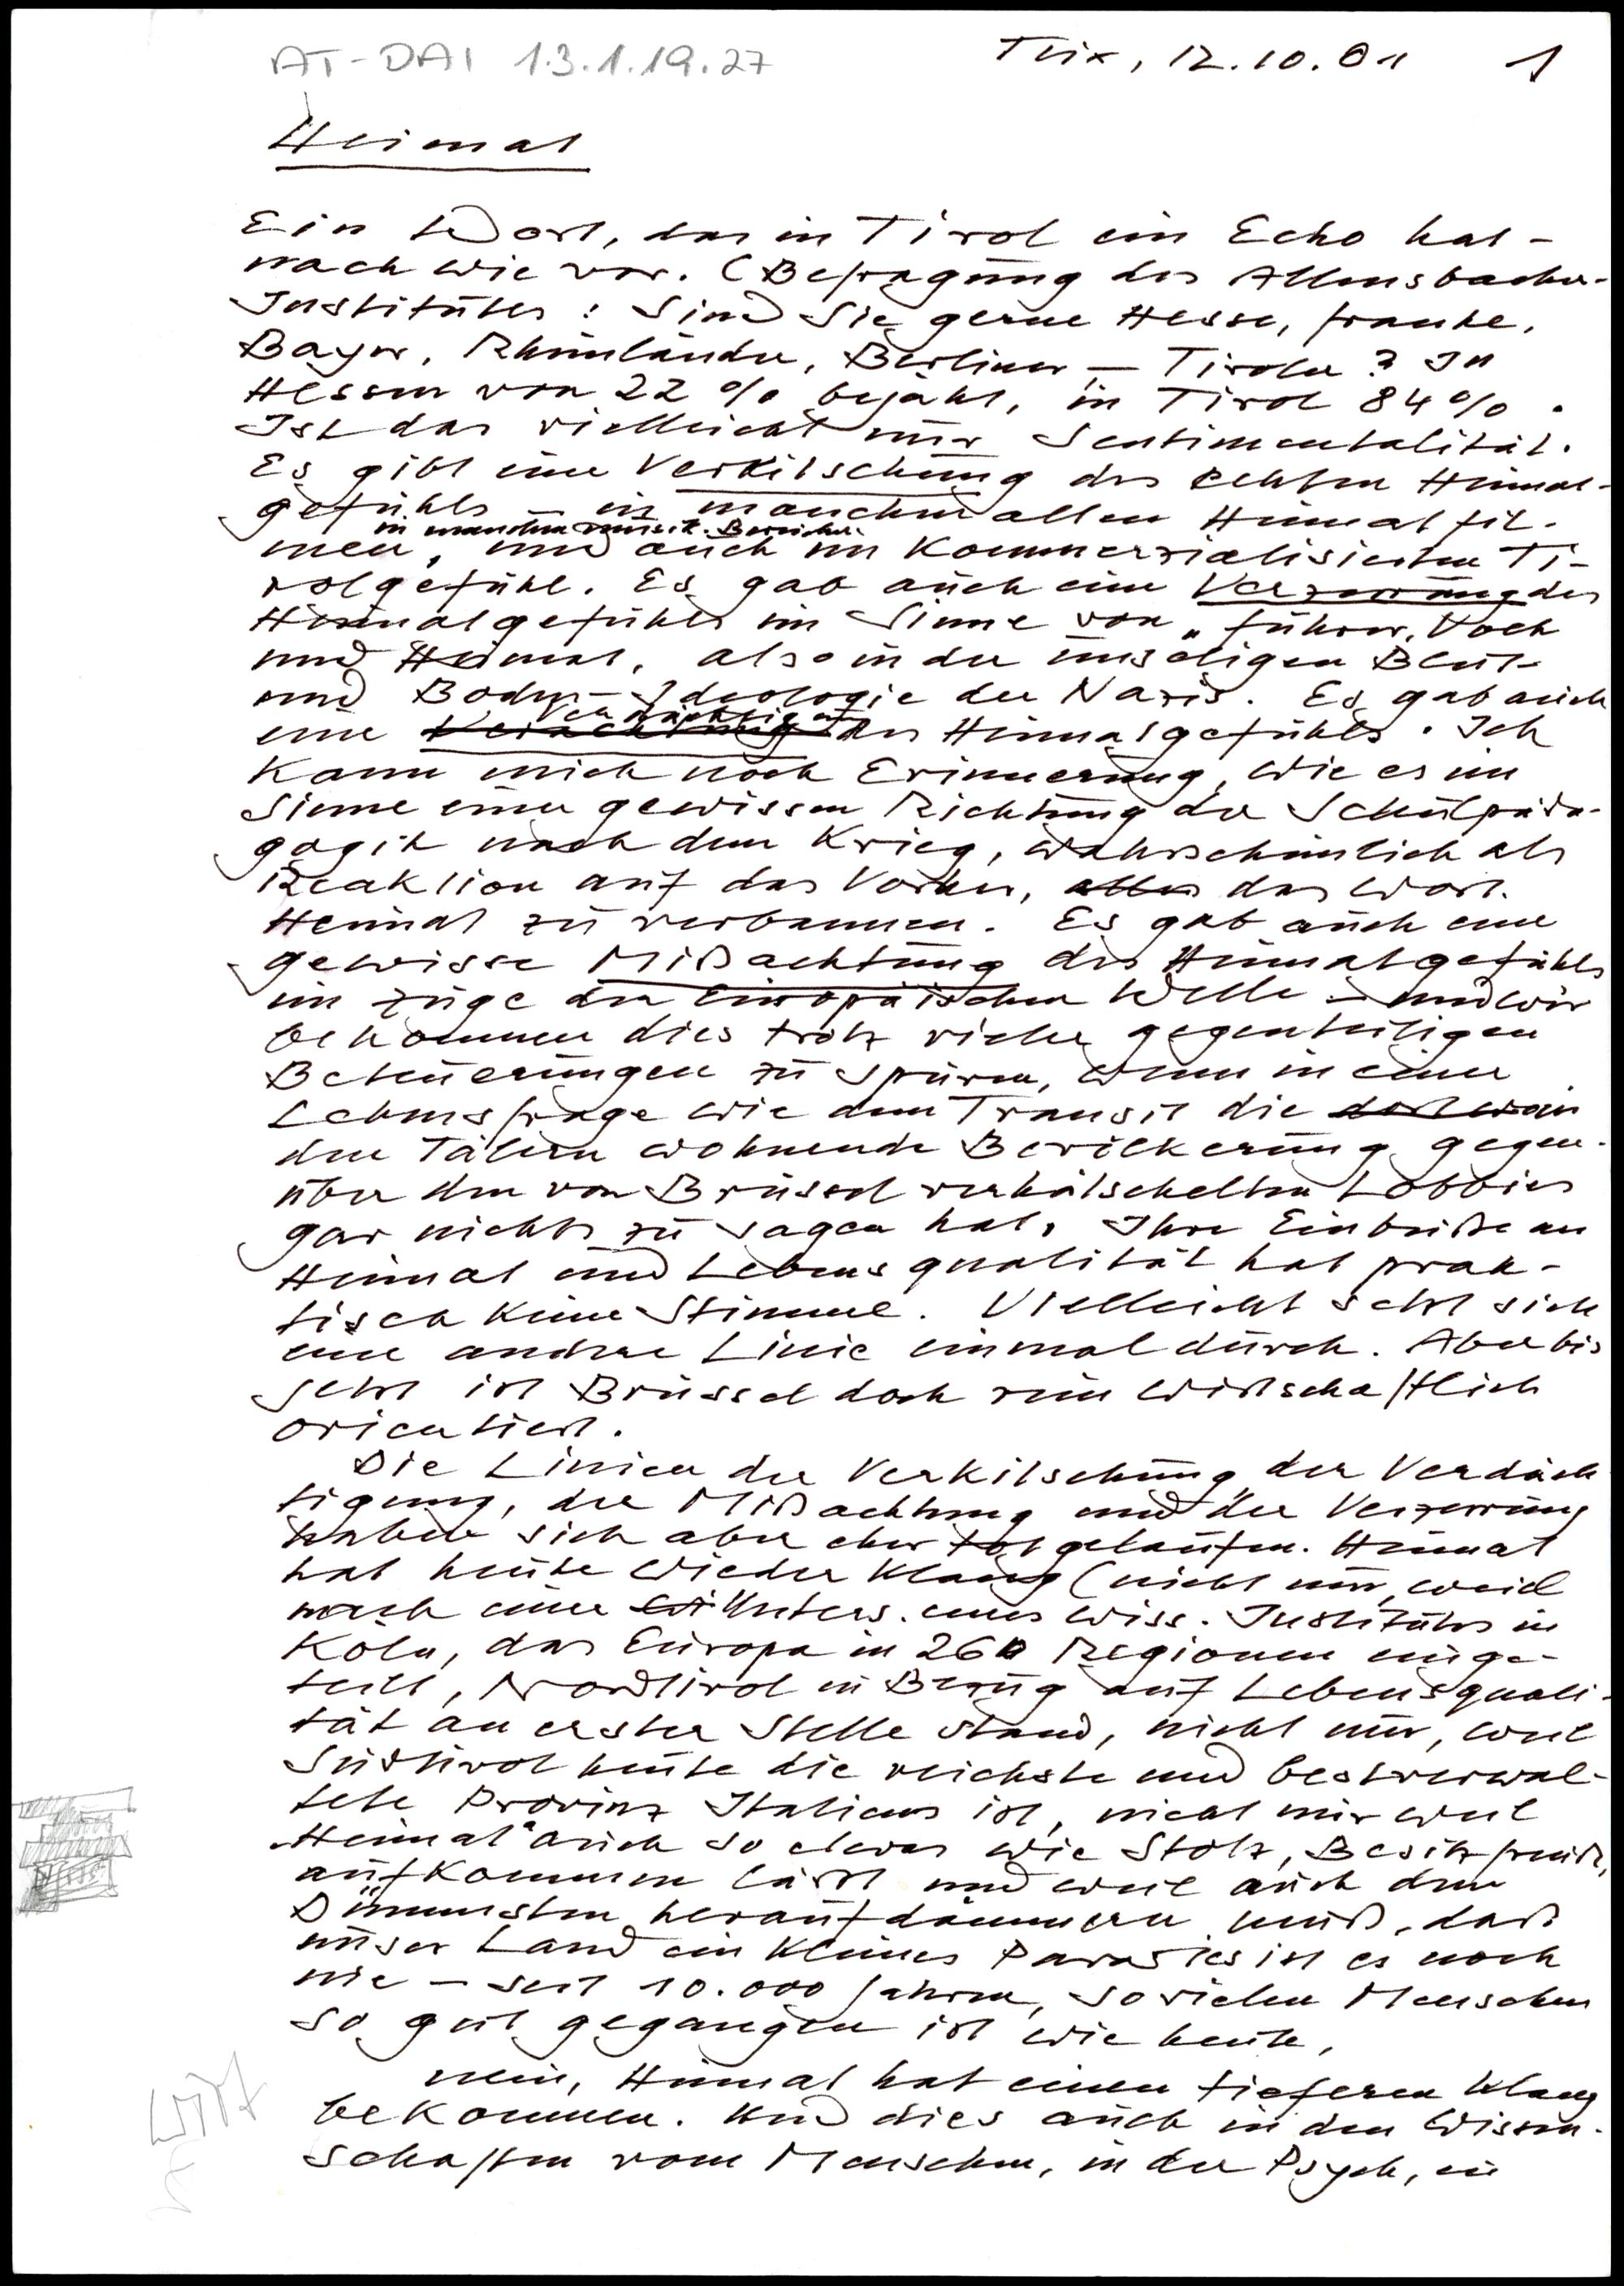 AT-DAI 1.3.1.19.27
Thix, 12.10.01 1
Heimat
Ein Wort, das in Tirol ein Echo hat -
nach wie vor. (Befragung des Allensbacher-
Institutes: Sind Sie gerne Hesse, Franke,
Bayer, Rheinländer, Berliner, – Tiroler? In
Hessen von 22 % bejaht, in Tirol 84 % .
Ist das vielleicht nur Sentimentalität.
Es gibt eine Verkitschung des echten Heimat-
gefühls – in manchen alten Heimatfil-
in manchen musik. Bereichen
men, und auch im kommerzialisierten Ti-
rolgefühl. Es gab auch eine Verzerrung des
Heimatgefühls im Sinne von „Führer, Volk
und Heimat, also in der unseligen Blut-
und Boden-Ideologie der Nazis. Es gab auch
Verdächtigung
eine Verachtung des Heimatgefühls. Ich
kann mich noch Erinnerung, wie es im
Sinne einer gewissen Richtung der Schulpäda-
gogik nach dem Krieg, wahrscheinlich als
Reaktion auf das Vorher, alles das Wort
Heimat zu verbannen. Es gab auch eine
gewisse Mißachtung des Heimatgefühls
im Zuge der Europäischen Welle – und wir
bekommen dies trotz vieler gegenteiligen
Beteuerungen zu spüren, wenn in einer
Lebensfrage wie dem Transit die in
den Tälern wohnende Bevölkerung gegen-
über den von Brüssel verhätschelten Lobbies
gar nichts zu sagen hat. Ihre Einbuße an
Heimat und Lebensqualität hat prak-
tisch keine Stimme. Vielleicht setzt sich
eine andere Linie einmal durch. Aber bis
jetzt ist Brüssel doch rein wirtschaftlich
orientiert.
Die Linien der Verkitschung, der Verdäch
tigung, der Mißachtung und der Verzerrung
haben sich aber eher totgelaufen. Heimat
hat heute wieder Klang (nicht nur, weil
nach einer Unters. eines wiss. Instituts in
Köln, das Europa in 260 Regionen einge-
teilt, Nordtirol in Bezug auf Lebensquali-
tät an erster Stelle stand, nicht nur, weil
Südtirol heute die reichste und bestverwal-
tete Provinz Italiens ist, nicht nur weil
„Heimat“ auch so etwas wie Stolz, Besitzfreude,
aufkommen läßt und weil auch dem
Dümmsten heraufdämmern muß, daß
unser Land ein kleines Paradies ist es noch
nie – seit 10.000 Jahren, so vielen Menschen
so gut gegangen ist wie heute,
nein, Heimat hat einen tieferen Klang
bekommen. Und dies auch in den Wissen-
schaften vom Menschen, in der Psych, in